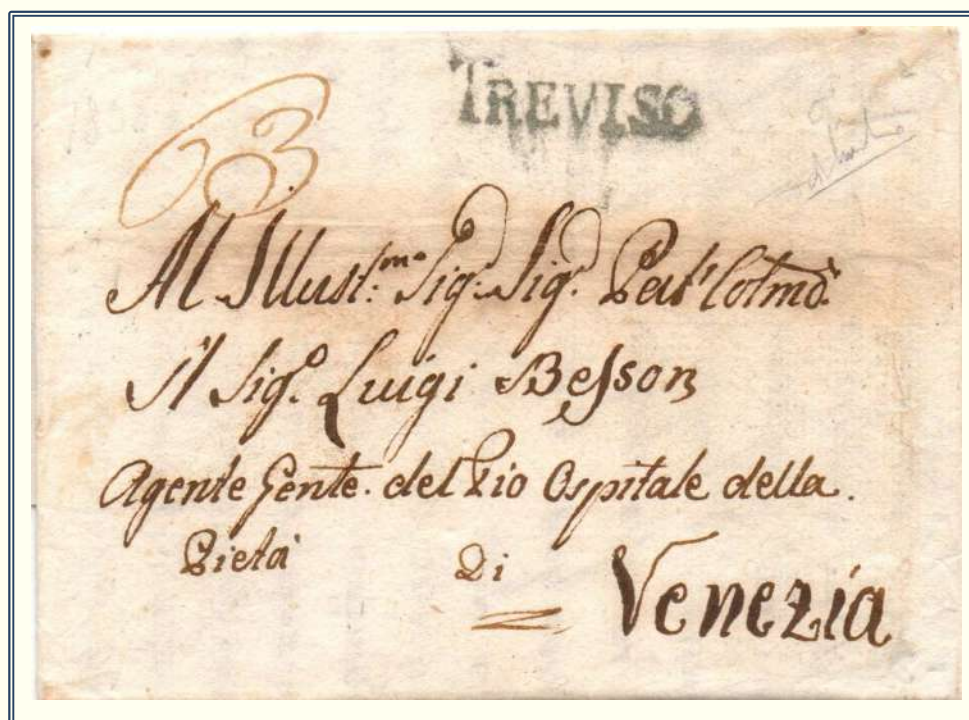 TREVISO
63
Al Illust.mo Sig. Sig. Pad. Colmo.
Il Sig.r Luigi Besson
Agente Gente. del Pio Ospitale della.
Pietà Di Venezia